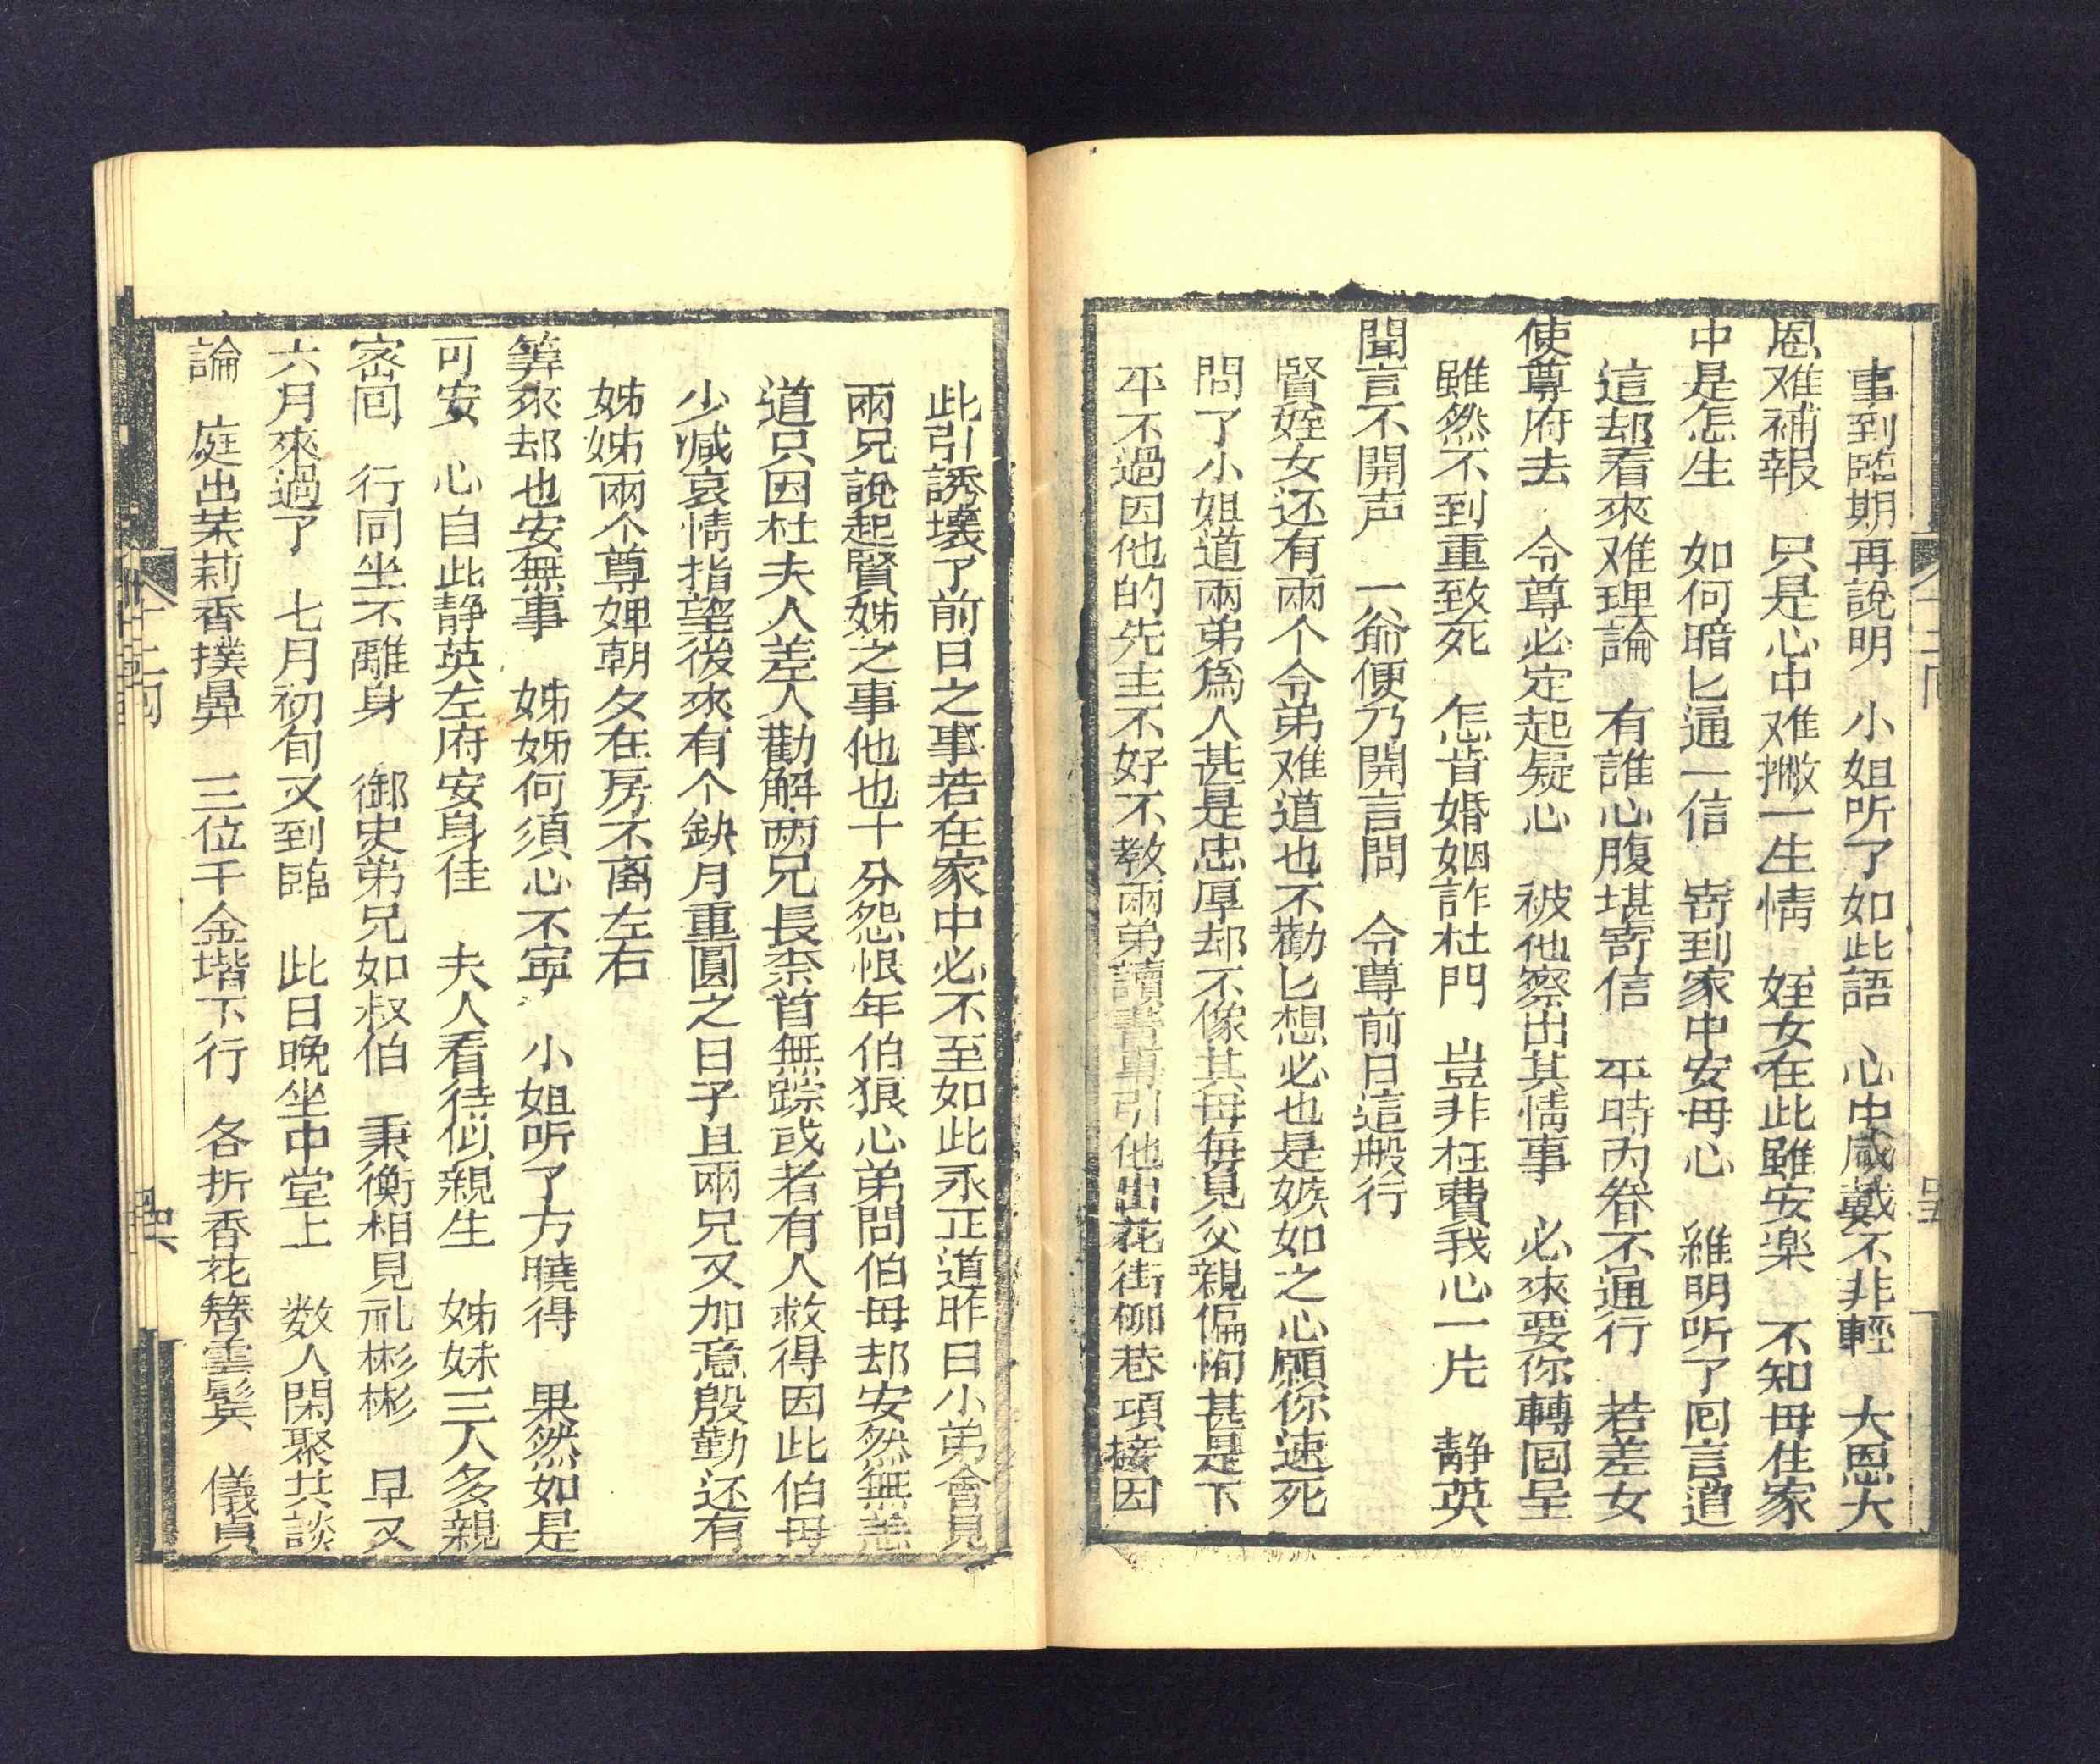 事到臨期再說明　小姐听了如此語　心中咸戴不非輕　大恩大
恩难補報　只是心中难撇一生情　姪女在此雖安楽　不知毋住家
中是怎生　如何暗匕通一信　嵜到家中安毋心　維明听了囘言道
這却看來难理論　有誰心腹堪嵜信　平時内眷不通行　若差女
使尊府去　令尊必定起疑心　被他察出其情事　必來要你轉囘呈
雖然不到重致死　怎肯婚姻詐杜門　豈非枉費我心一片　靜英
聞言不開声　一爺便乃開言問　令尊前日這般行
賢姪女还有兩个令弟难道也不勸匕想必也是嫉如之心願你速死
問了小姐道兩弟爲人甚是忠厚却不像其毋每見父親偏恂甚是下
平不過因他的先主不好不教兩弟讀書專引他出花街柳巷項接因
此引誘壞了前日之事若在家中必不至如此永正道昨日小弟會見
兩兄說起賢姊之事他也十分怨恨年伯狼心弟問伯毋却安然無恙
道只因杜夫人差人勸解兩兄長柰首無踪或者有人救得因此伯毋
少减哀情指望後來有个缺月重圓之日子且兩兄又加意殷勤还有
姊姊兩个尊婢朝夕在房不离左右
筭來却也安無事　姊姊何須心不寧　小姐听了方曉得　果然如是
可安　心自此静英左府安身佳　夫人看待似親生　姊妹三人多親
宻囘　行同坐不離身　御史弟兄如叔伯　秉衡相見礼彬彬　早又
六月來過了　七月初旬又到臨　此日晚坐中堂上　数人閑聚共談
論　庭出茉莉香撲鼻　三位千金堦下行　各折香花簪雲鬂　儀貟